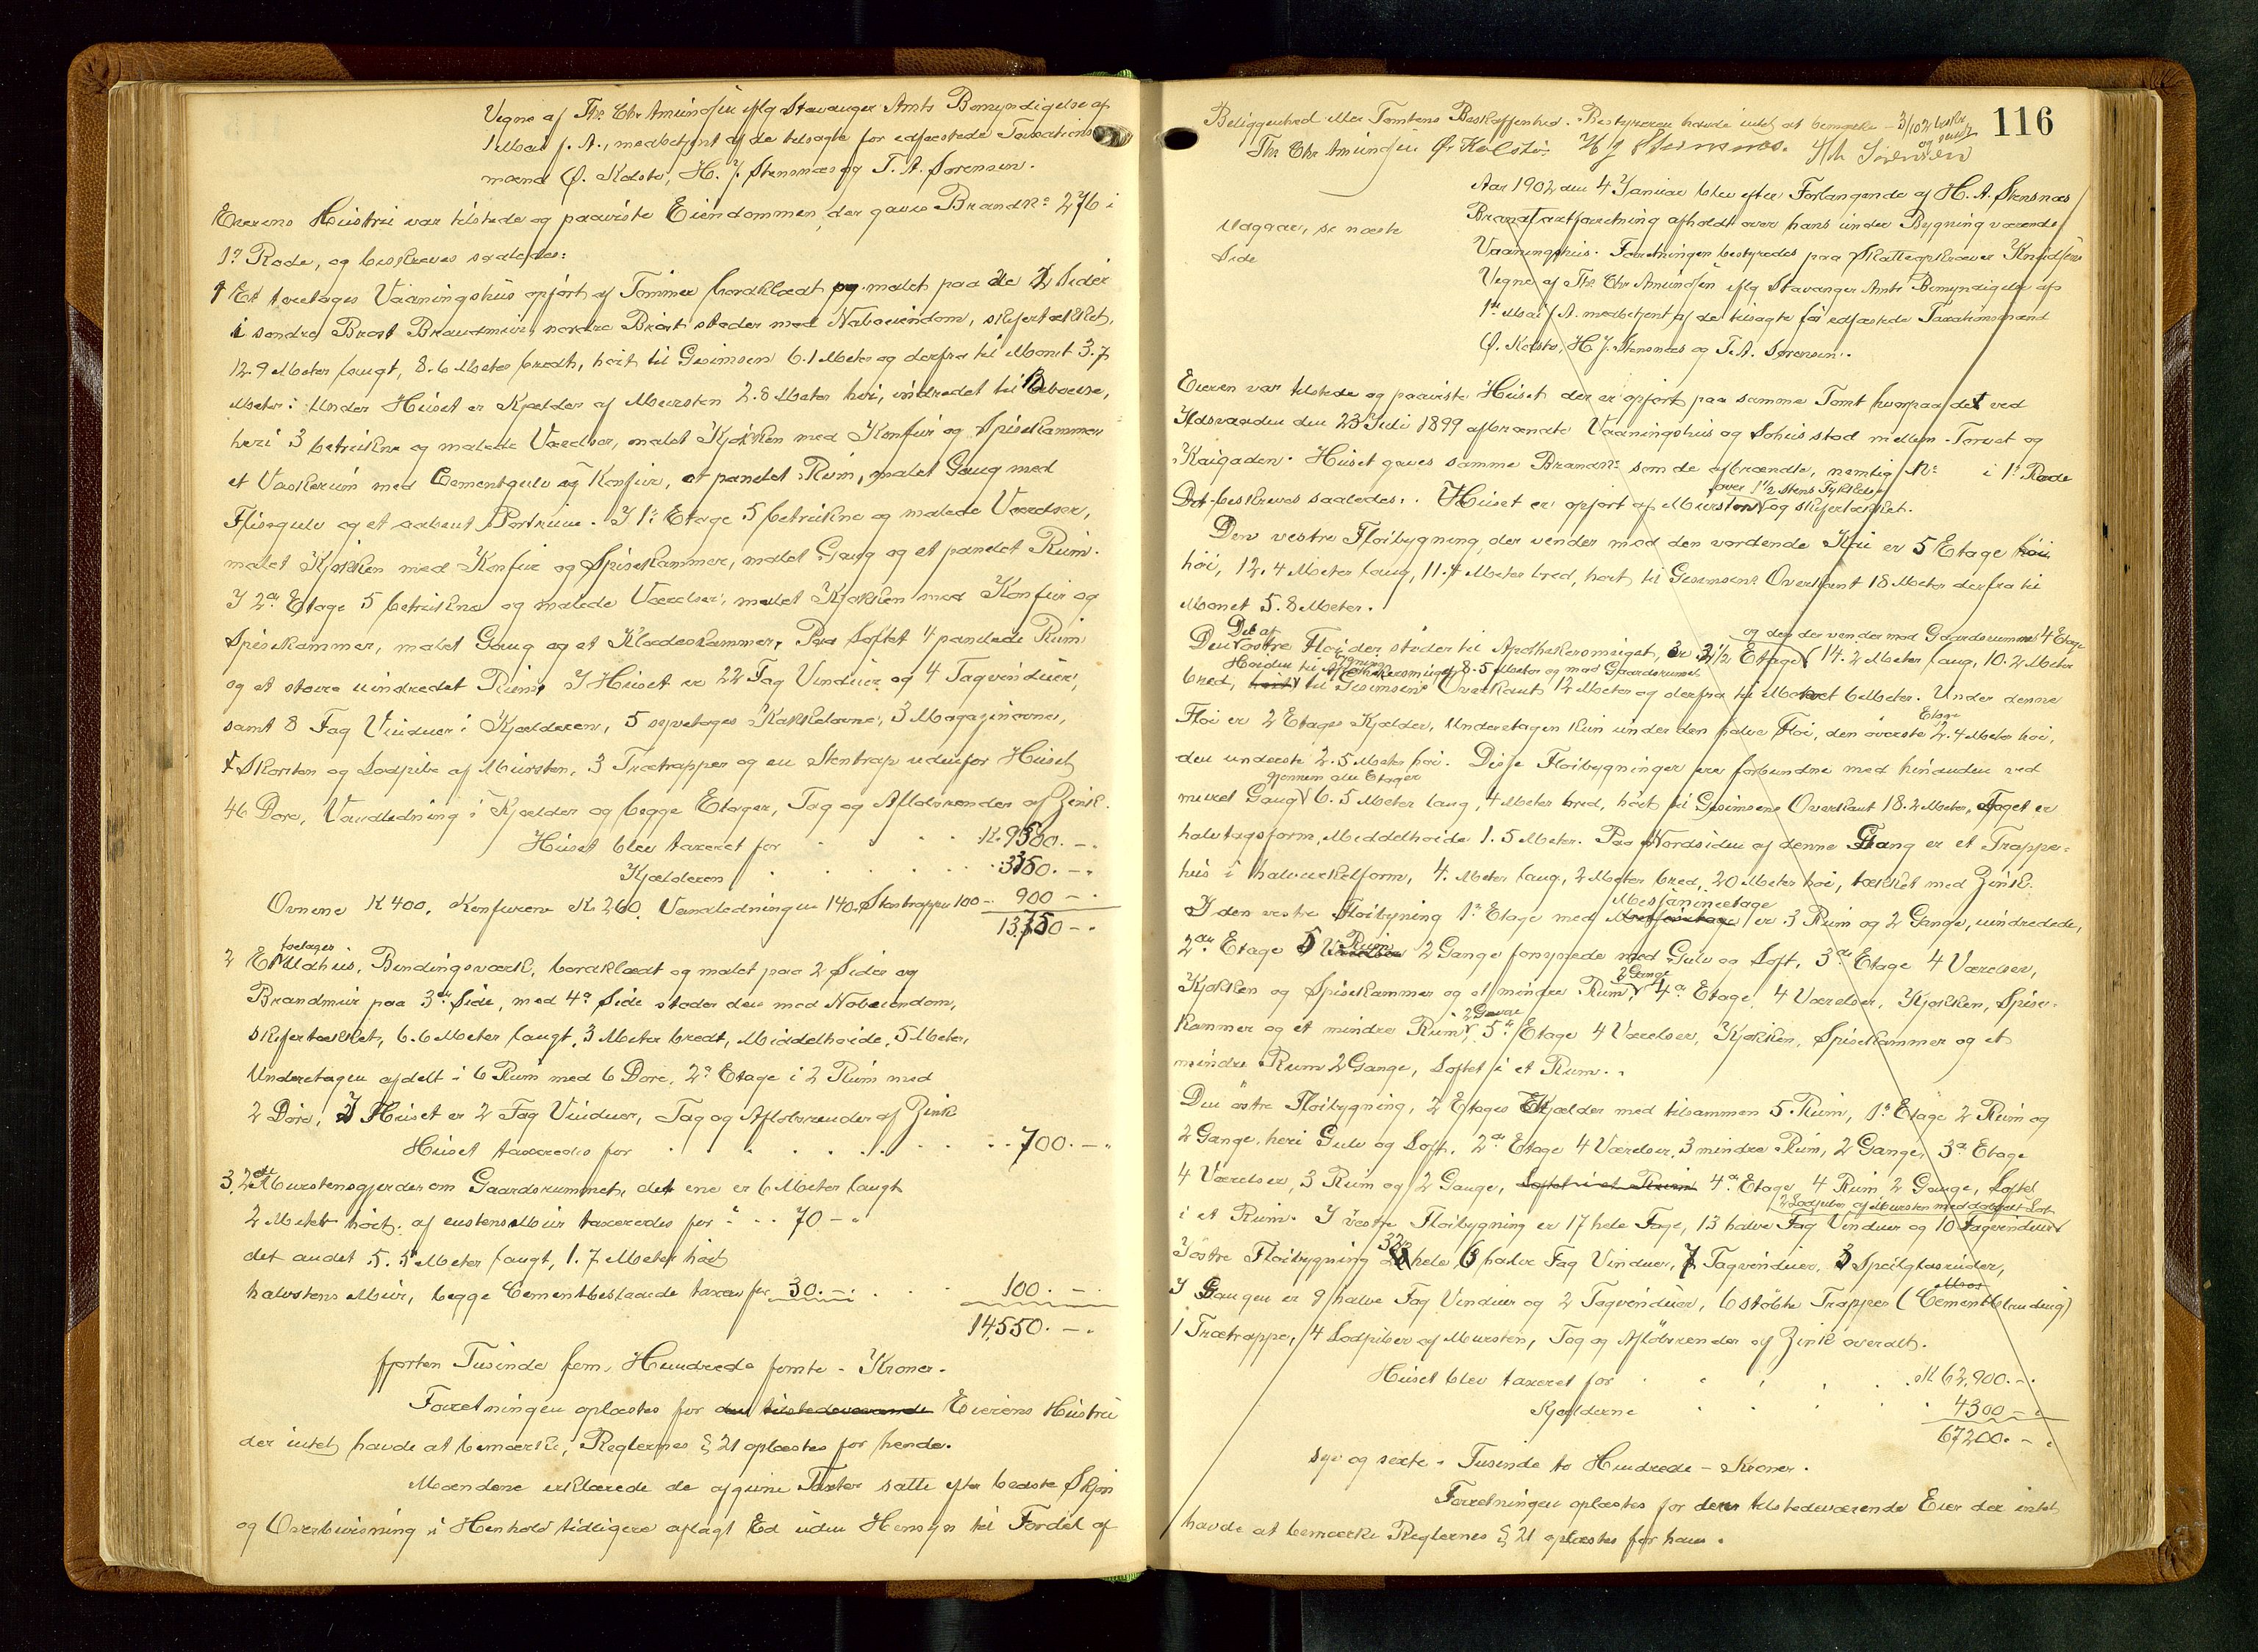 Vegne af Thr. Chr. Amundsen iflg Stavanger Amts Bemyndigelse af
1 Mai f. A., medbetjent af de tilsagte for edfæstede Taxations
mænd Ø. Kolstø, H. J. Stensnæs og T. A. Sørensen.
Eierens Hustru var tilstede og paaviste Eiendommen, der gaves Brandn: 276 i
1ste Rode, og beskreves saaledes:
1 Et toetages Vaaningshus opført af Tømmer bordklædt og malet paa de 2 Sider
i søndre Brøst Brandmur, nordre Brøst støder mod Naboeiendom, skifertækket,
12.9 Meter langt, 8.6 Meter bredt, høit til Gesimsen 6.1 Meter og derfra til Mønet 3.7
Meter. Under Huset er Kjælder af Mursten 2.8 Meter høi, indredet til Beboelse,
heri 3 betrukne og malede Værelser, malet Kjøkken med Komfur og Spisekammer
et Vaskerum med Cementgulv og Komfur, et panelet Rum, malet Gang med
Flisegulv og et aabent Portrum. I 1ste Etage 5 betrukne og malede Værelser,
malet Kjøkken med Komfur og Spisekammer, malet Gang og et panelet Rum.
I 2den Etage 5 betrukne og malede Værelser, malet Kjøkken med Komfur og
Spisekammer, malet Gang og et Klædeskammer, Paa Loftet 4 panelede Rum
og et større uindredet Rum. I Huset er 22 Fag Vinduer og 4 Tagvinduer,
samt 8 Fag Vinduer i Kjælderen, 5 syvetages Kakkelovne, 3 Magazinovne,
1 Skorsten og Lodpibe af Mursten, 3 Trætrapper og en Stentrap udenfor Huset
46 Døre, Vandledning i Kjælder og begge Etager, Tag og Afløbsrender af Zink.
Huset blev taxeret for . . . K. 9500. —.
Kjælderen . . . . . 3350. —.
Ovnene K 400, Komfurene K 260, Vandledningen 140, Stentrappen 100 — 900 —.
13,750 —.
2 Et toetages Udhus, Bindingsværk, bordklædt og malet paa 2 Sider og
Brandmur paa 3die Side, med 4de Side støder den mod Naboeiendom,
skifertækket, 6.6 Meter langt, 3 Meter bredt, Middelhøide, 5 Meter,
Underetagen afdelt i 6 Rum med 6 Døre, 2den Etage i 2 Rum med
2 Døre, I Huset er 2 Fag Vinduer, Tag og Afløbsrender af Zink
Huset taxeredes for . . . . . . . 700. —.
3, 2 Stk Murstensgjerder om Gaardsrummet, det ene er 6 Meter langt
2 Meter høit. af enstens Mur taxeredes for . . . 70 —.
det andet 5.5 Meter langt, 1.7 Meter høit
halvstens Mur, begge Cementbeslaaede taxeres for 30. — . . . 100. —.
14,550. —.
fjorten Tusinde fem, Hundrede femti - Kroner.
Forretningen oplæstes for den tilstedeværende Eierens Hustru
der intet havde at bemærke, Reglernes § 21 oplæstes for hende.
Mændene erklærede de afgivne Taxter satte efter bedste Skjøn
og Overbevisning i Henhold tidligere aflagt Ed uden Hensyn til Fordel af
Beliggenhed eller Tomtens Beskaffenhed. Bestyreren havde intet at bemærke — 3/1 02
116
Thr. Chr Amundsen Ø. Kolstø. H J Stensnæs. Sørensen
Aar 1902 den 4 Januar blev efter Forlangende af H. A. Stensnæs
Brandtaxtforretning afholdt over hans under Bygning værende
Magaar, se næste
Side
Vaaningshus. Forretningen bestyredes paa Skatteopkræver Knudsens
Vegne af Thr. Chr Amundsen iflg Stavanger Amts Bemyndigelse af
1ste Mai f. A. medbetjent af de tilsagte for edfæstede Taxationsmænd
Ø. Kolstø, H. J. Stensnæs og T. A. Sørensen.
Eieren var tilstede og paaviste Huset der er opført paa samme Tomt hvorpaa det ved
Ildsvaaden den 23 Juli 1899 afbrændte Vaaningshus og Søhus stod mellem Torvet og
Kaigaden. Huset gaves samme Brandn: som de afbrændte, nemlig N: i 1ste Rode
over 1 1/2 Stens Tykkelse
Det beskreves saaledes: Huset er opført af Mursten og skifertækket.
Den vestre Fløibygning, der vender mod den vordende Kai er 5 Etage høi
høi, 12.4 Meter lang, 11.4 Meter bred, høit til Gesimsens Overkant 18 Meter derfra til
Mønet 5.8 Meter.
Del af og den der vender mod Gaardsrummet 4 Etage
Den østre Fløi der støder til Apothekersmuget, er 3 1/2 Etage 14.2 Meter lang, 10.2 Meter
Høiden til Apothekersmuget 8.5 Meter og mod Gaardsrummet
bred, høit til Gesimsens Overkant 12 Meter og derfra til Mønet 6 Meter. Under denne
Fløi er 2 Etages Kjælder, Underetagen kun under den halve Fløi, den øverste Etage 2.4 Meter høi,
den underste 2.5 Meter høi. Disse Fløibygninger ere forbundne med hinanden ved
gjennem alle Etager
muret Gang 6.5 Meter lang, 4 Meter bred, høit til Gesimsens Overkant 18.2 Meter, Taget er
halvtagsform, Middelhøide 1.5 Meter. Paa Nordsiden af denne Gang er et Trappe=
hus i halvcirkelform, 4. Meter lang, 2 Meter bred, 20 Meter høi, tækket med Zink.
Messanineetage
I den vestre Fløibygning 1ste Etage med er 3 Rum og 2 Gange, uindredede,
2den Etage 5 Rum 2 Gange forsynede med Gulv og Loft, 3die Etage 4 Værelser,
2 Gange
Kjøkken og Spisekammer og et mindre Rum, 4de Etage, 4 Værelser, Kjøkken, Spise=
2 Gange
kammer og et mindre Rum, 5te Etage 4 Værelser, Kjøkken, Spisekammer og et
mindre Rum 2 Gange, Loftet i et Rum.
Den østre Fløibygning, 2 Etages Kjælder med tilsammen 5 Rum, 1ste Etage 2 Rum og
2 Gange, heri Gulv og Loft. 2den Etage 4 Værelser, 3 mindre Rum, 2 Gange, 3die Etage
4 Værelser, 3 Rum og 2 Gange, Loftet i et Rum 4de Etage 4 Rum 2 Gange, Loftet
2 Lodpiber af Mursten med dobbelt Løb
i et Rum. I vestre Fløibygning er 17 hele Fage, 13 halve Fag Vinduer og 10 Tagvinduer
I østre Fløibygning 32 hele 6 halve Fag Vinduer, 7 Tagvinduer, 3 Speilglasruder,
I Gangen er 9 halve Fag Vinduer og 2 Tagvinduer, 6 støbte Trapper (Cementblanding)
1 Trætrappe, 4 Lodpiber af Mursten, Tag og Afløbsrender af Zink overalt.
Huset blev taxeret for . . . . . K 62,900. —.
Kjælderne . . . . 4300 —.
67200. —.
syv og sexti - Tusinde to Hundrede - Kroner.
Forretningen oplæstes for den tilstedeværende Eier der intet
havde at bemærke Reglernes § 21 oplæstes for ham.